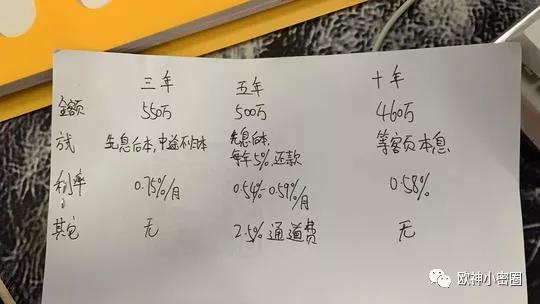 三年 五年 十年
金额 550万 500万 460万
方式 先息后本,中途不归本 先息后本, 等额本息
每年5%还款
利率 0.75%/月 0.54%-0.59%/月 0.58%
其它 无 2.5%通道费 无
欧神小密圈